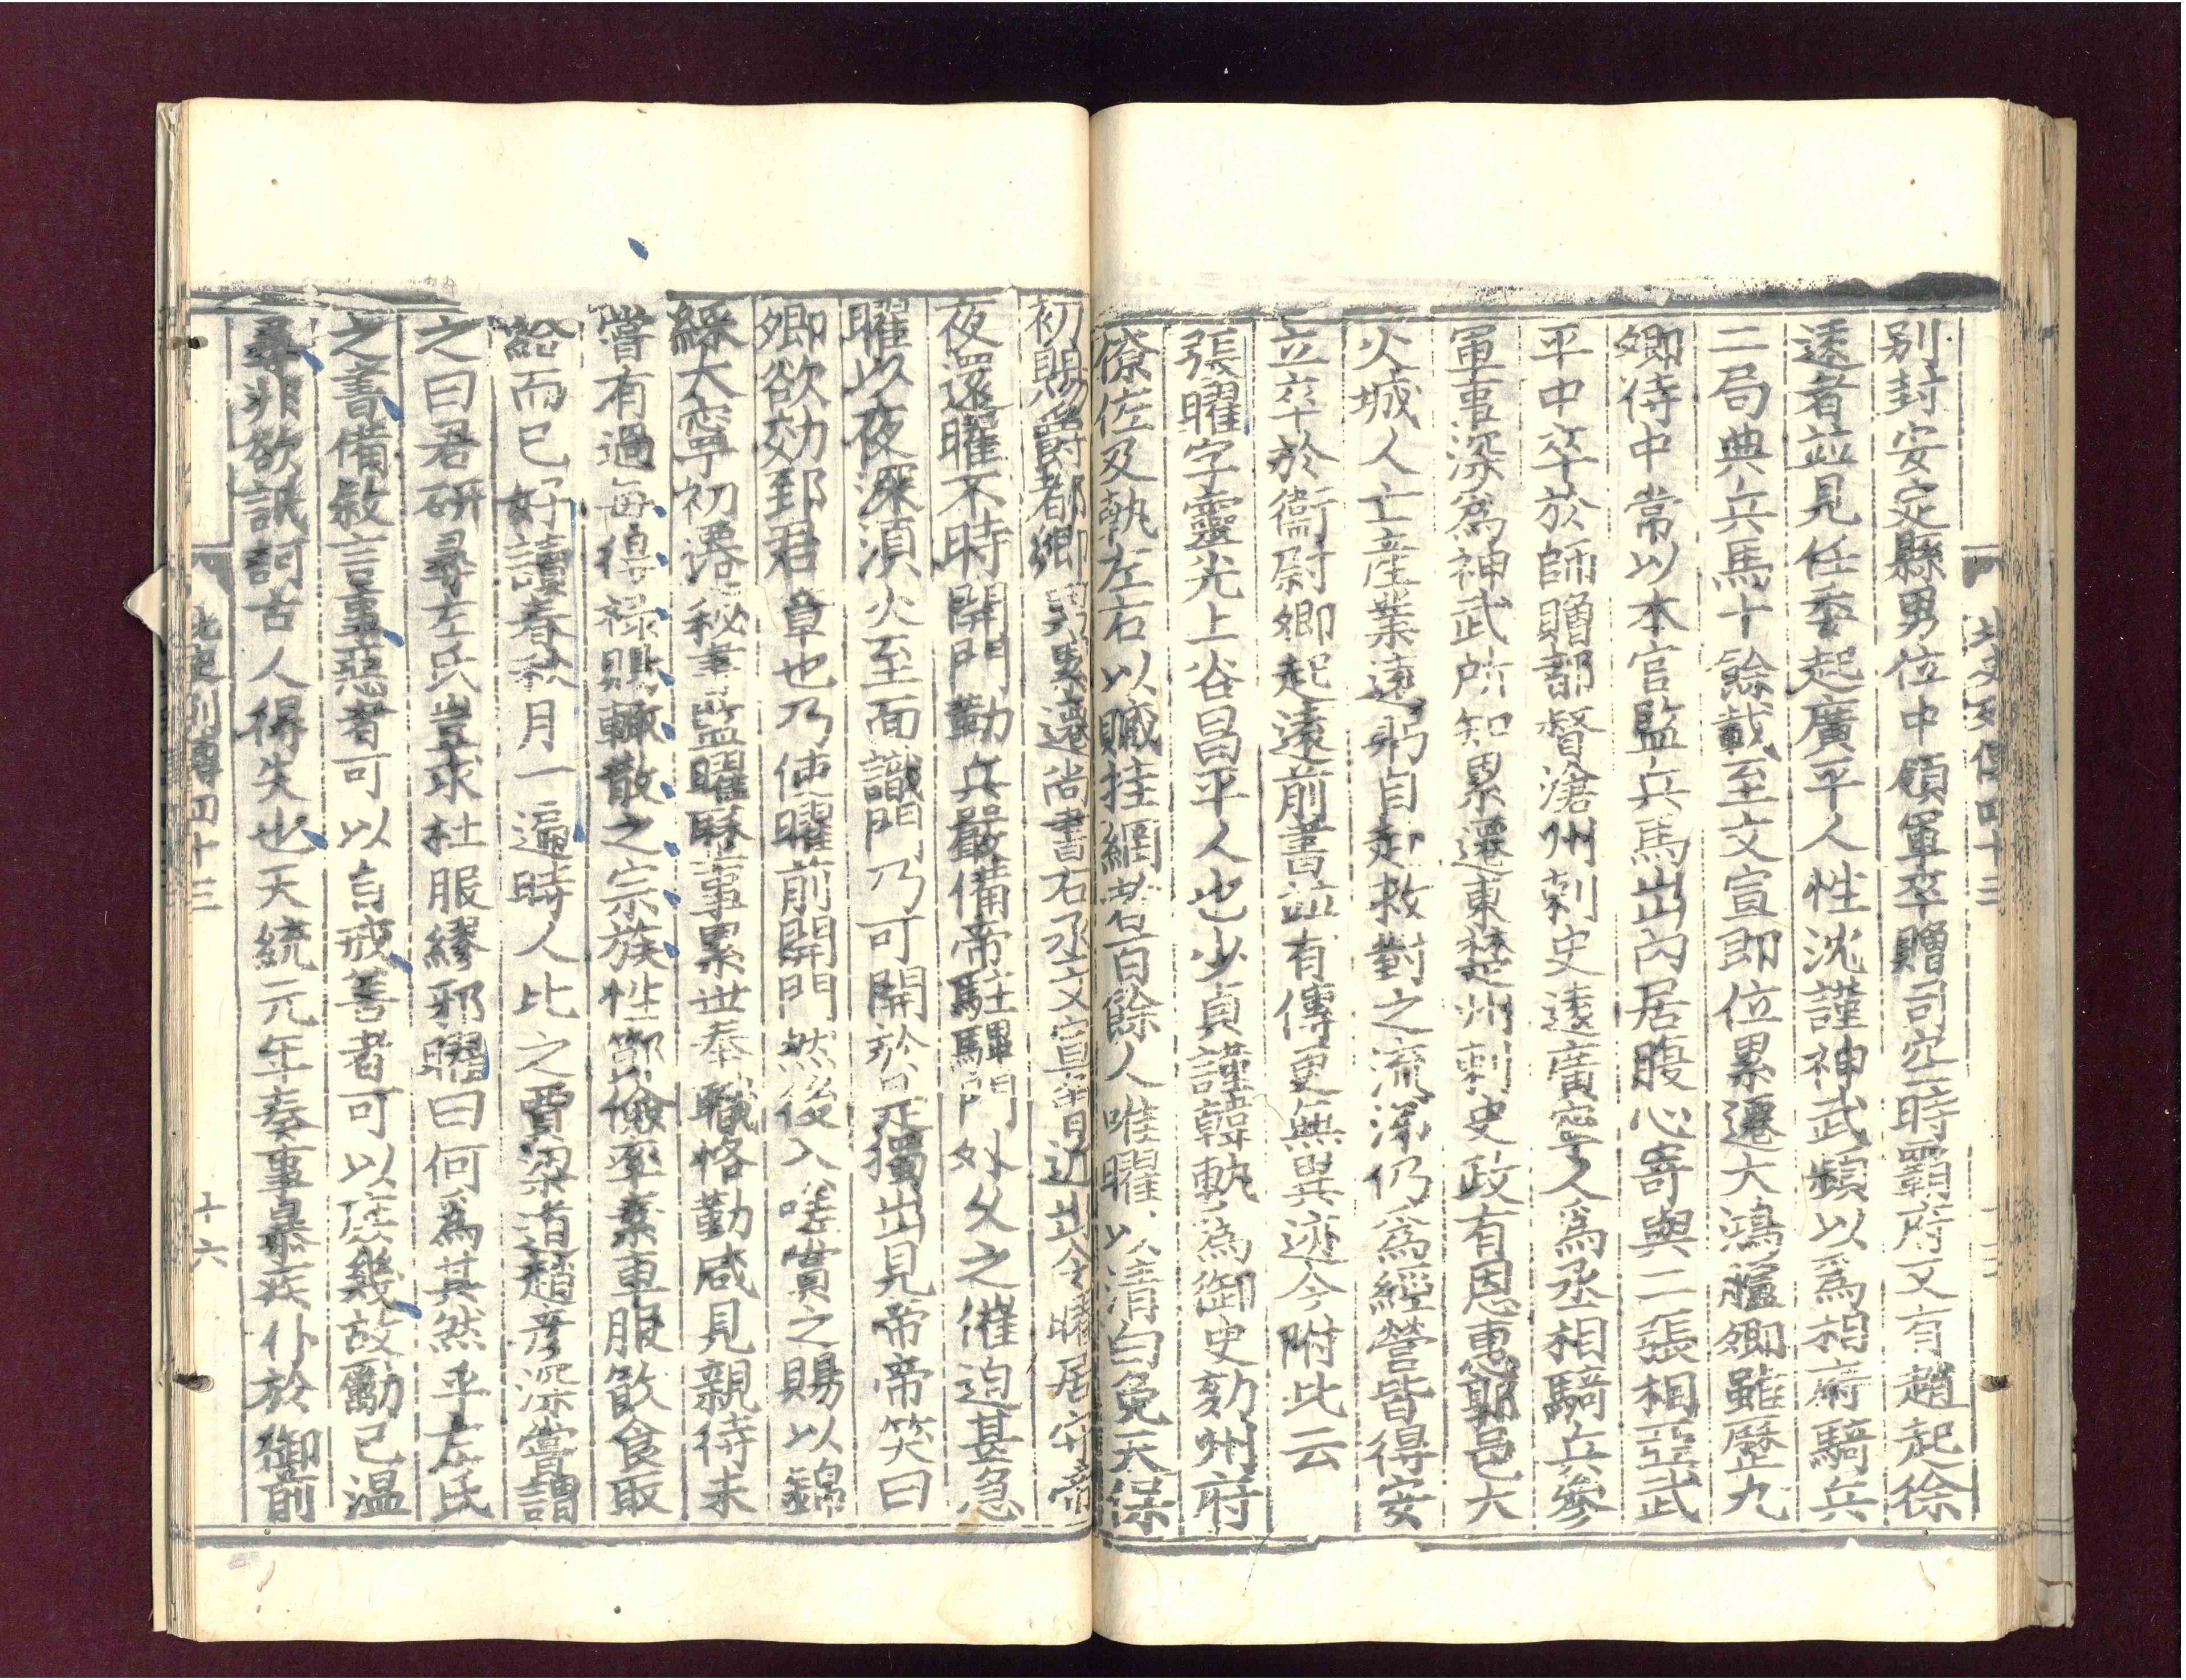 北史列傳四十三
別封安定縣男位中領軍卒贈司空時霸府又有趙起徐
遠者並見任委起廣平人性沈謹神武頻以爲相府騎兵
二局典兵馬十餘載至文宣即位累遷大鴻臚卿雖歷九
卿侍中常以本官監兵馬出內居腹心寄與二張相亞武
平中卒於師贈都督滄州刺史遠廣寧人爲丞相騎兵參
軍事深爲神武所知累遷東楚州刺史政有恩惠郭邑大
火城人亡產業遠躬自赴救對之流涕仍爲經營皆得安
立卒於衛尉卿起遠前書並有傳更無異迹今附此云
張曜字靈光上谷昌平人也少貞謹韓軌爲御史劾州府
僚佐及執左右以贓挂網者百餘人唯曜以清白免天保
初賜爵都鄉男累遷尚書右丞文宣曾近出令曜居守帝
夜還曜不時開門勒兵嚴備帝駐驆門外久之催迫甚急
曜以夜深須火至面識門乃可開於是獨出見帝帝笑曰
卿欲効郅君章也乃使曜前開門然後入嗟賞之賜以錦
綵大寧初遷秘書監曜歷事累世奉職恪勤咸見親待未
嘗有過每得祿賜輒散之宗族性節儉率素車服飲食取
給而已好讀春秋月一遍時人比之賈梁道趙彥深嘗謂
之曰君研尋左氏豈求杜服繆邪曜曰何爲其然乎左氏
之書備敘言事惡者可以自戒善者可以庶幾故勵己溫
尋非欲詆訶古人得失也天統元年奏事暴疾仆於御前
北史列傳四十三
十六